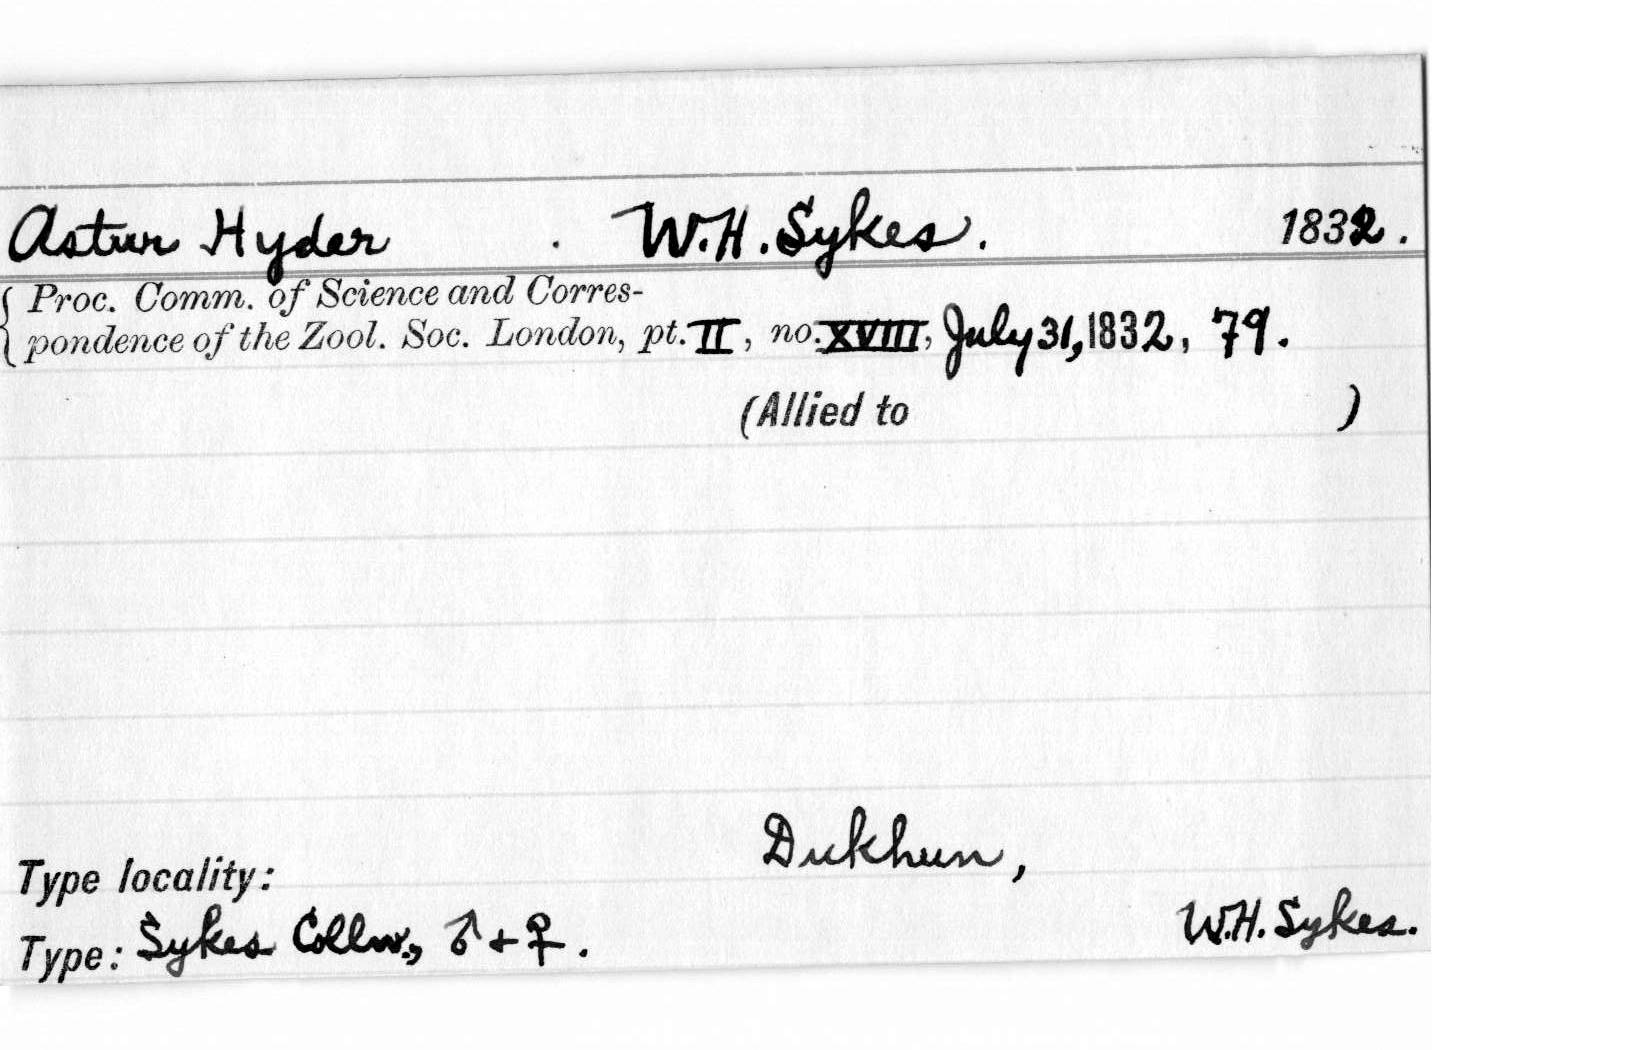 Astur Hyder . W.H. Sykes. 1832.
Proc. Comm. of Science and Corres-
pondence of the Zool. Soc. London, pt. II, no. XVIII, July 31, 1832, 79.
(Allied to )
Dukhun,
Type locality:
W.H. Sykes.
Type: Sykes Colln., ♂ + ♀.